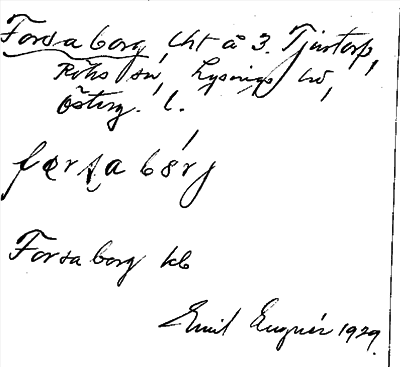 Forsaborg, lht å 3. Tjurtorp,
Röks sn, Lysings hd,
Österg. l.
forsabårj
Forsaborg kb
Emil 1929.